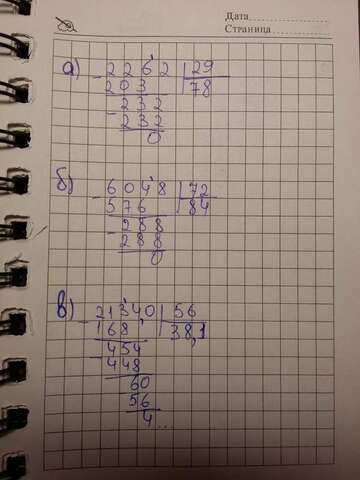 Дата
Страница
а) -2262 | 29
203 | 78
-232
232
0
б) -6048 | 72
576 | 84
-288
288
0
в) -21340 | 56
168 | 38,1
-454
448
60
56
4...